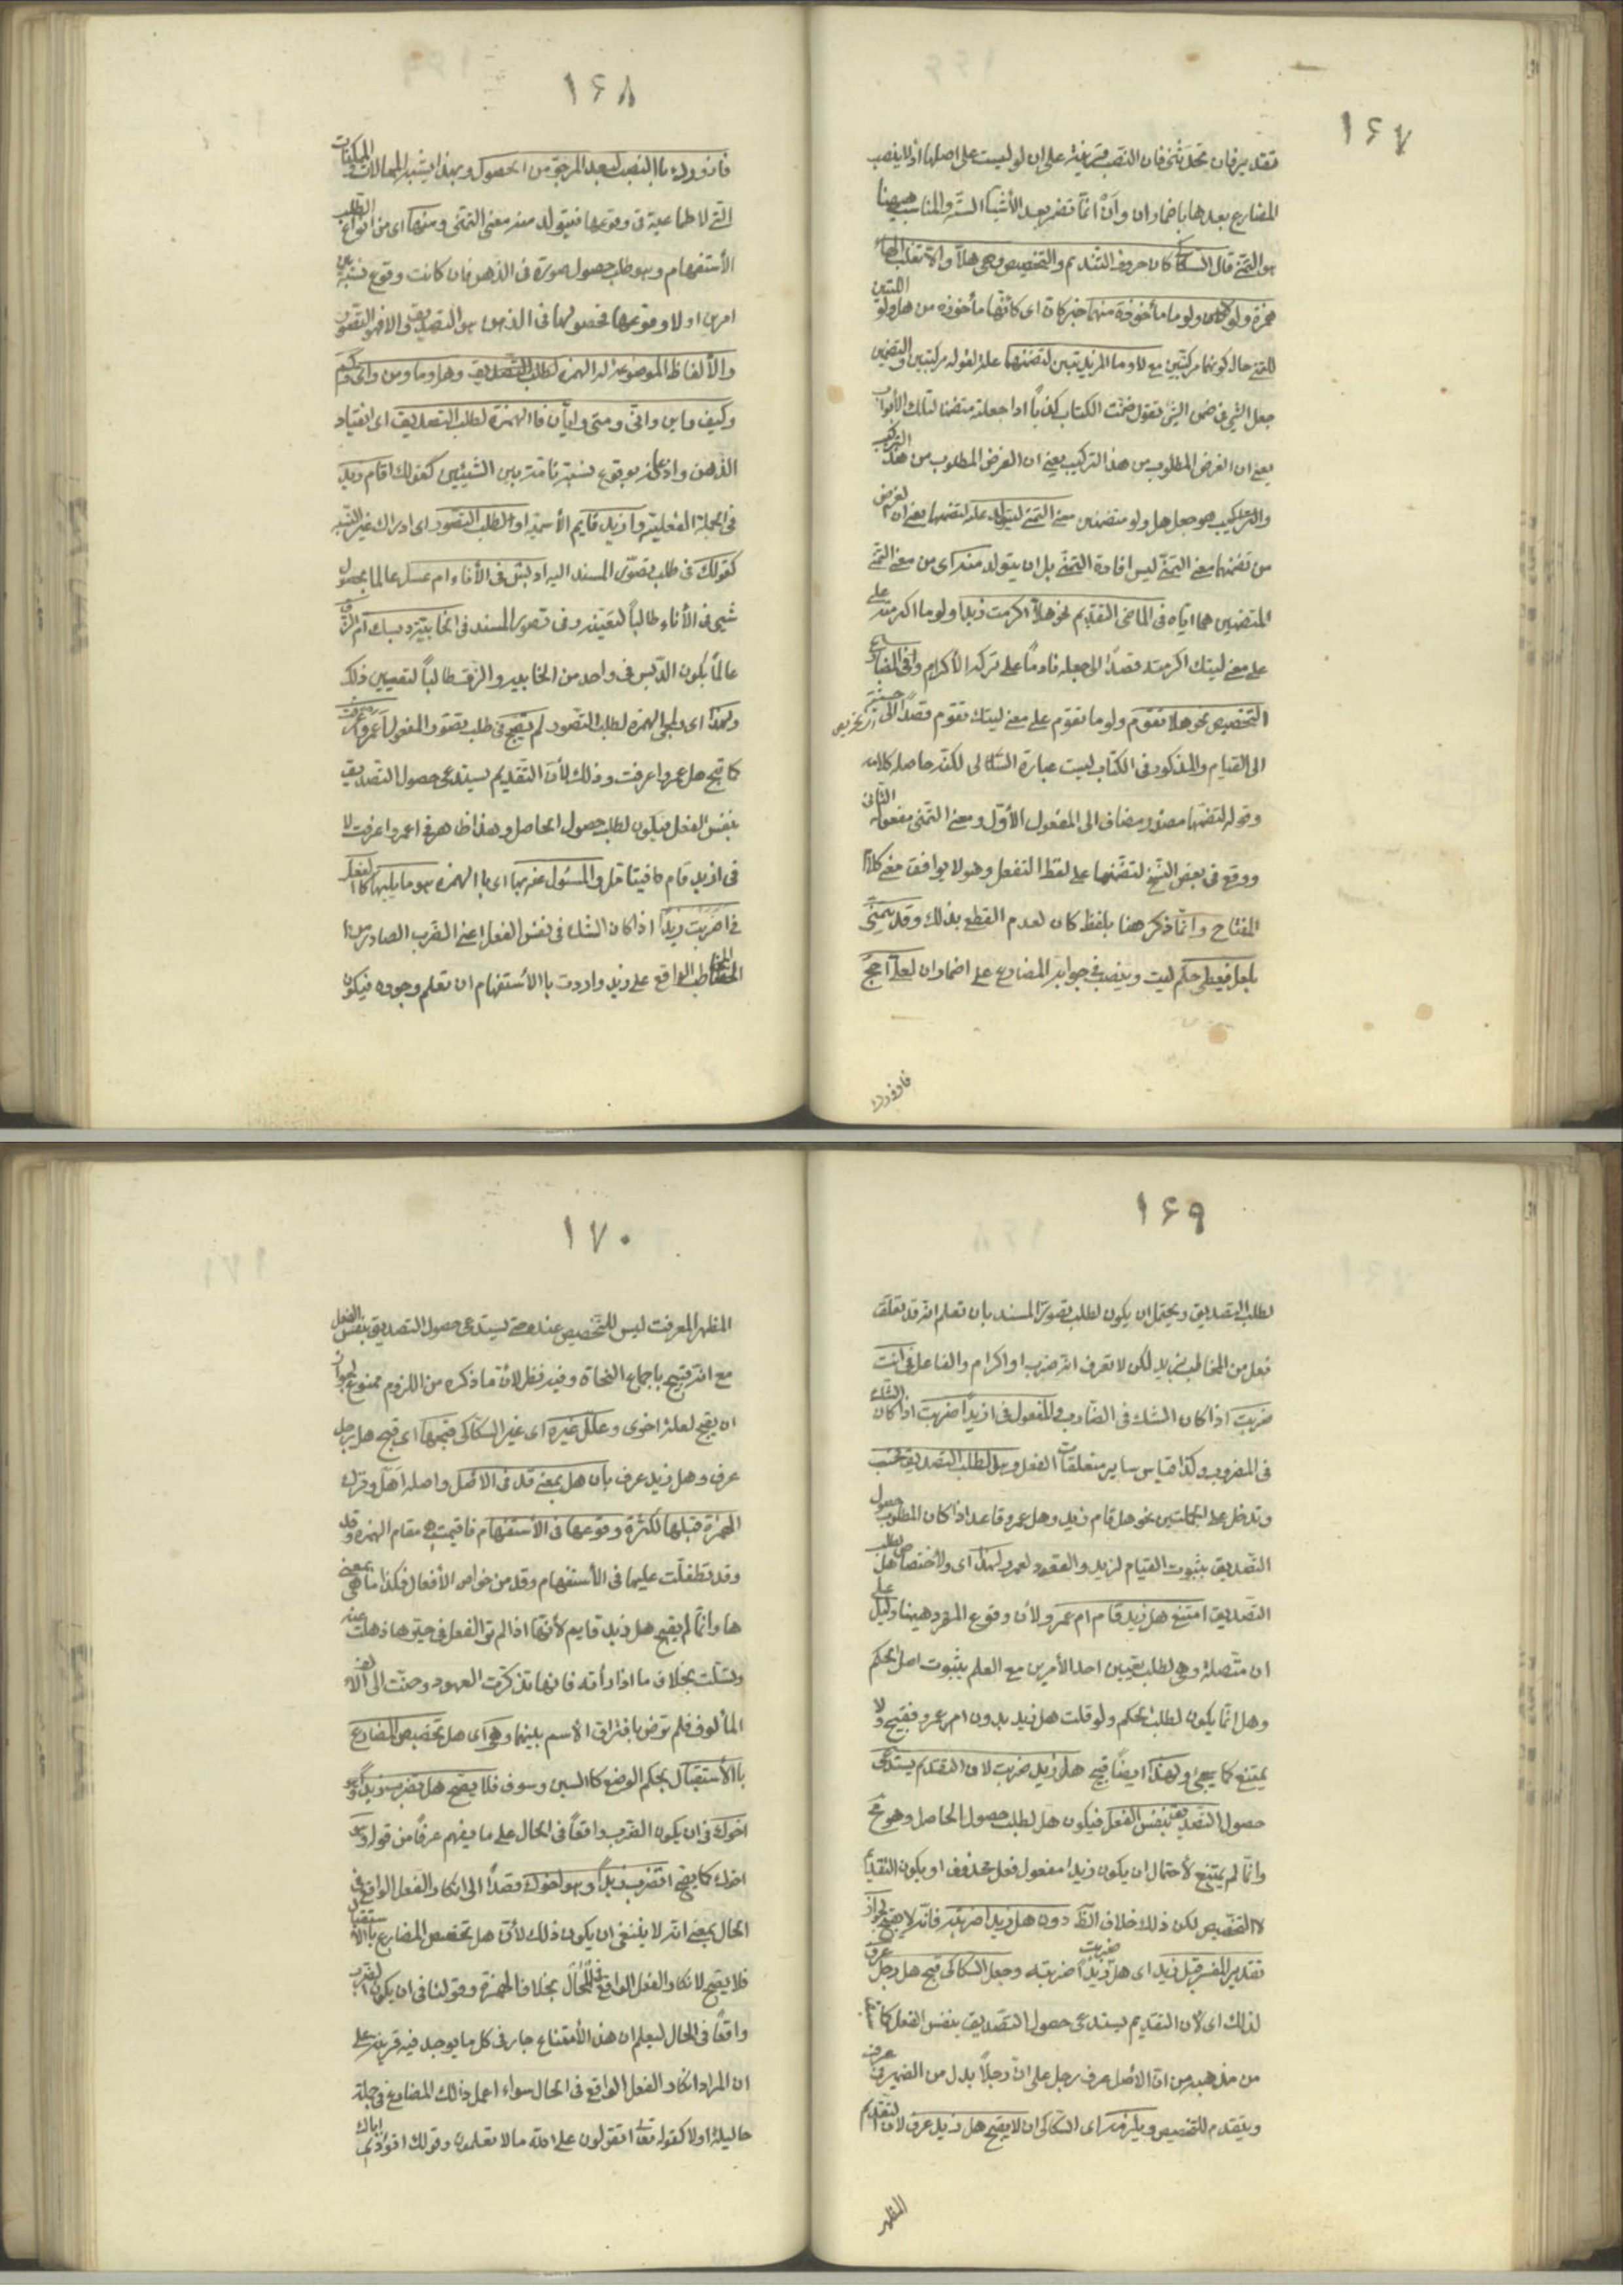 ١٦٧
تقدير فان تحدثني فان النصب قرينة على ان لو ليست على اصلها اذ لا ينصب
المضارع بعدها باضمار ان وان انما تضمر بعد الأشياء الستة والمناسب ههنا
هو التمنى قال السكاكى كان حروف التنديم والتحضيض وهى هلا والا بقلب الهاء
همزة ولولا ولوما مأخوذة منهما خبر كان اى كانها مأخوذة من هل ولو اللتين
للتمنى حال كونهما مركبتين مع لا وما المزيدتين لتضمنهما علة لقوله مركبتين والتضمين
جعل الشئ فى ضمن الشئ تقول ضمنت الكتاب كذا بابا اذا جعلته متضمنا لتلك الأبواب
يعنى ان الغرض المطلوب من هذا التركيب يعنى ان الغرض المطلوب من هذا التركيب
والتركيب هو جعل هل ولو متضمنين معنى التمنى ليتولد علة لتضمنهما يعنى ان الغرض
من تضمنهما معنى التمنى ليس افادة التمنى بل ان يتولد منه اى من معنى التمنى
المتضمنين هما اياه فى الماضى التنديم نحو هلا اكرمت زيدا ولوما اكرمته على
على معنى ليتك اكرمته قصدا الى جعله نادما على ترك الأكرام وفى المضارع
التحضيض نحو هلا تقوم ولوما تقوم على معنى ليتك تقوم قصدا الى حثه
الى القيام والمذكور فى الكتاب ليست عبارة السكاكى لكنه حاصل كلامه
وقوله لتضمنهما مصدر مضاف الى المفعول الأول ومعنى التمنى مفعوله الثانى
ووقع فى بعض النسخ لتضمنهما على لفظ التفعل وهو لا يوافق معنى كلام
المفتاح وانما ذكر هذا بلفظ كان لعدم القطع بذلك وقد يتمنى
بلعل فيعطى حكم ليت وينصب فى جوابه المضارع على اضمار ان لعلى احج
فازورك
١٦٨
فازورك بالنصب لبعد المرجو من الحصول وبهذا يشبه المحالات والممكنات
التى لا طماعية فى وقوعها فيتولد منه معنى التمنى ومنها اى من انواع الطلب
الأستفهام وهو طلب حصول صورة فى الذهن فان كانت وقوع نسبة بين
امرين او لا وقوعها فحصولها فى الذهن هو التصديق والا فهو التصور
والألفاظ الموضوعة له الهمزة لطلب التصديق وهل وما ومن واى وكم
وكيف واين وانى ومتى وايان فالهمزة لطلب التصديق اى انقياد
الذهن واذعانه بوقوع نسبة تامة بين الشيئين كقولك اقام زيد
فى الجملة الفعلية وازيد قايم الأسمية او لطلب التصور اى ادراك غير النسبة
كقولك فى طلب تصور المسند اليه ادبس فى الأناء ام عسل عالما بحصول
شئ فى الأناء طالبا لتعينه وفى تصور المسند فى الخابية دبسك ام فى الزق
عالما بكون الدبس فى واحد من الخابية والزق طالبا لتعيين ذلك
ولهذا اى ولمجئ الهمزة لطلب التصور لم يقبح فى طلب تصور المفعول اعمروا عرفت
كما قبح هل عمروا عرفت وذلك لأن التقديم يستدعى حصول التصديق
بنفس الفعل فيكون لطلب حصول الحاصل وهذا ظاهر فى اعمروا عرفت لا
فى ازيد قام فليتامل والمسئول عنه بها اى بالهمزة هو ما يليها كالفعل
فى اضربت زيدا اذا كان الشك فى نفس الفعل اعنى الضرب الصادر من
المخاطب الواقع على زيد واردت بالأستفهام ان تعلم وجوده فيكون
١٦٩
لطلب التصديق ويحتمل ان يكون لطلب تصور المسند بان تعلم انه قد تعلق
فعل من المخاطب بزيد لكن لا تعرف انه ضرب او اكرام والفاعل فى أنت
ضربت اذا كان الشك فى الضارب والمفعول فى ازيدا ضربت اذا كان الشك
فى المضروب وكذا قياس ساير متعلقات الفعل وهل لطلب التصديق فحسب
وتدخل على الجملتين نحو هل قام زيد وهل عمرو قاعد اذا كان المطلوب حصول
التصديق بثبوت القيام لزيد والقعود لعمرو ولهذا اى ولأختصاص هل بطلب
التصديق امتنع هل زيد قام ام عمرو لأن وقوع المفرد ههنا دليل على
ان متصلة وهى لطلب تعيين احد الأمرين مع العلم بثبوت اصل الحكم
وهل انما يكون لطلب الحكم ولو قلت هل زيد بدون ام عمرو فقبيح ولا
يمتنع كما سيجئ ولهذا ايضا قبح هل زيد ضربت لان التقديم يستدعى
حصول التصديق بنفس الفعل فيكون هل لطلب حصول الحاصل وهو مح
وانما لم يمتنع لأحتمال ان يكون زيدا مفعول فعل محذوف او يكون التقديم
لا التخصيص لكن ذلك خلاف الظ دون هل زيدا ضربته فانه لا يقبح لجواز
تقدير المفسر قبل زيد اى هل ضربت زيدا ضربته وجعل السكاكى قبح هل رجل عرف
لذلك اى لأن التقديم يستدعى حصول التصديق بنفس الفعل كما
من مذهبه من ان الأصل عرف رجل على ان رجلا بدل من الضمير فى عرف
ويتقدم للتخصيص ويلزمه اى السكاكى ان لا يقبح هل زيد عرف لان التقديم
المظهر
١٧٠
المظهر المعرفت ليس للتخصيص عنده حتى يستدعى حصول التصديق بنفس الفعل
مع انه قبيح باجماع النحاة وفيه نظر لأن ما ذكره من اللزوم ممنوع لجواز
ان يقبح لعلة اخرى وعلل غيره اى غير السكاكى قبحهما اى قبح هل رجل
عرف وهل زيد عرف بان هل بمعنى قد فى الاصل واصله اهل وترك
الهمزة قبلها لكثرة وقوعها فى الأستفهام فاقيمت هى مقام الهمزة وقد
وقد تطفلت عليها فى الأستفهام وقد من خواص الأفعال فكذا ما هى بمعنى
ها وانما لم يقبح هل زيد قايم لأنها اذا لم تر الفعل فى حيزها ذهلت عنه
وتسلت بخلاف ما اذا رأته فانها تذكرت العهود وحنت الى الالف
المألوف فلم ترض بافتراق الأسم بينهما وهى اى هل تخصيص المضارع
بالأستقبال بحكم الوضع كالسين وسوف فلا يصح هل تضرب زيدا وهو
اخوك فى ان يكون الضرب واقعا فى الحال على ما يفهم عرفا من قوله وهو
اخوك كما يصح اتضرب زيدا وهو اخوك قصدا الى انكار الفعل الواقع فى
الحال بمعنى انه لا ينبغى ان يكون ذلك لأن هل تخصص المضارع بالأستقبال
فلا يصح لانكار الفعل الواقع فى الحال بخلاف الهمزة وقولنا فى ان يكون الضرب
واقعا فى الحال ليعلم ان هذا الأمتناع جار فى كل ما يوجد فيه قرينة على
ان المراد انكار الفعل الواقع فى الحال سواء اعمل ذلك المضارع فى جملة
حالية او لا كقوله تعا اتقولون على الله ما لا تعلمون وقولك اتؤذى اباك